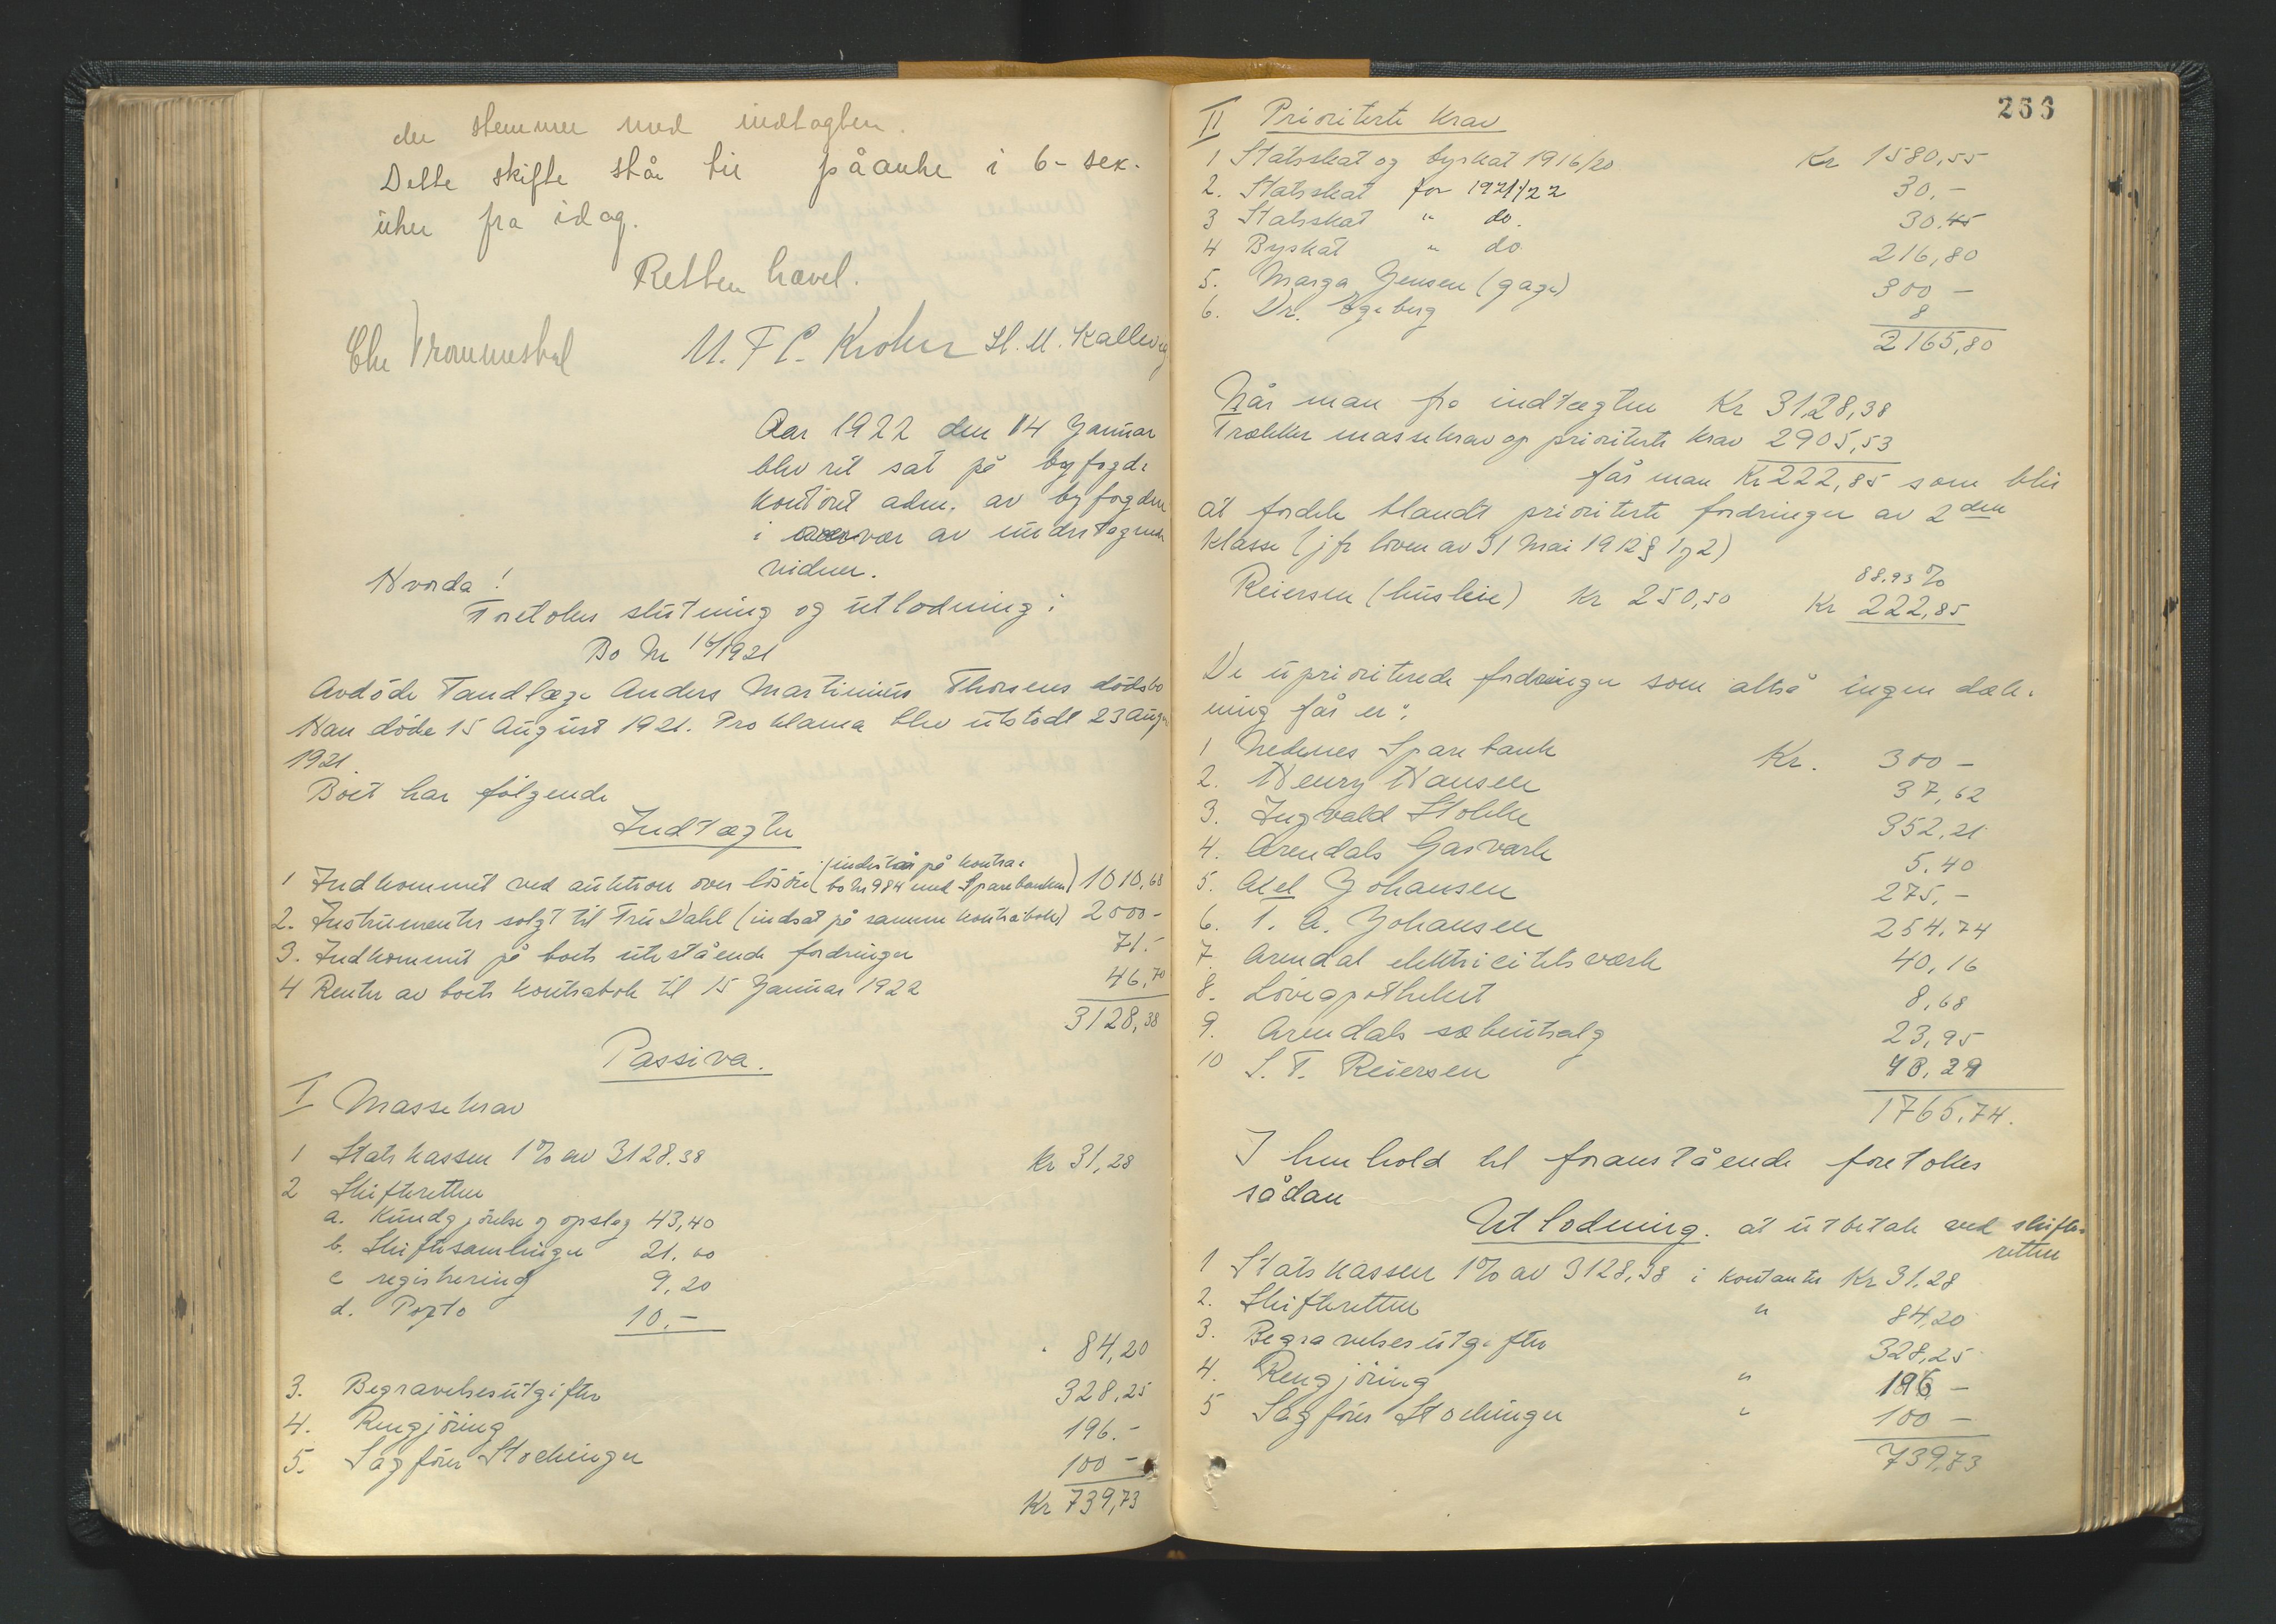 der stemmer med indtagten.
Dette skifte står til påanke i 6- sex.
uker fra idag.
Retten hævet.
Chr Trommestad U. F C. Krohn H. M. Kallevig
Aar 1922 den 14 Januar
blev ret sat på byfogd-
kontoret adm. av byfogden
i overvær av undertegnede
vidner.
Hvorda!
Foretokes slutning og utlodning i
Bo Nr 16/1921
Avdøde Tandlæge Anders Martinius Thorsens dødsbo
Han døde 15 August 1921. Proklama blev utstedt 23 August
1921
Boet har følgende
Indtægter
1 Indkommet ved auktion over løsøre (indestår på kontra-
bo Nr 984 med Sparebanken) 1010,68
2. Instrumenter solgt til Fru Dahl (indsat på samme kontrabok) 2000-
3. Indkommet på boets utestående fordringer 71.-
4 Renter av boets kontrabok til 15 Januar 1922 46,70
3128,38
Passiva.
I Massekrav
1 Statskassen 1% av 3128.38 Kr 31,28
2 Skifteretten
a. Kundgjørelse og opslag 43,40
b. Skiftesamlinger 21.00
c registrering 9,20
d. Porto 10.-
84,20
3. Begravelsesutgifter 328,25
4. Rengjøring 196.-
5. Sagfører Stockinger 100-
Kr 739,73
266
II Prioriterte Krav
1 Statsskat og byskat 1916/20 Kr 1580,55
2. Statsskat for 1921/22 30,-
3 Statsskat " do. 30.45
4 Byskat " do. 216,80
5. Marga Jensen (gage) 300-
6. Dr. Egeberg 8
2165,80
Når man fra indtægten Kr 3128,38
Trækker massekrav og prioriterte krav 2905,53
får man Kr 222,85 som blir
at fordele blandt prioriterte fordringer av 2den
klasse (jfr loven av 31 Mai 1912 § 1 2)
88,93%
Reiersen (husleie) Kr 250,50 Kr 222,85
De uprioriterede fordringer som altså ingen dæk-
ning får er:
1 Nedenes Sparebank Kr. 300-
2. Henry Hansen 37,62
3. Ingvald Stokke 352,21
4. Arendals Gasværk 5.40
5. Axel Johansen 275.-
6. T. A. Johansen 254.74
7. Arendal elektricitetsværk 40,16
8. Løveapotheket 8,68
9. Arendals sæbeutsalg 23,95
10 S. T. Reiersen
1765.74.
I henhold til foranstående foretokes
sådan
Utlodning. at utbetale ved skifte-
retten
1 Statskassen 1% av 3128,38 i kontanter Kr 31.28
2. Skifteretten " 84,20
3. Begravelsesutgifter 328,25
4. Rengjøring " 196-
5 Sagfører Stockinger " 100-
739,73